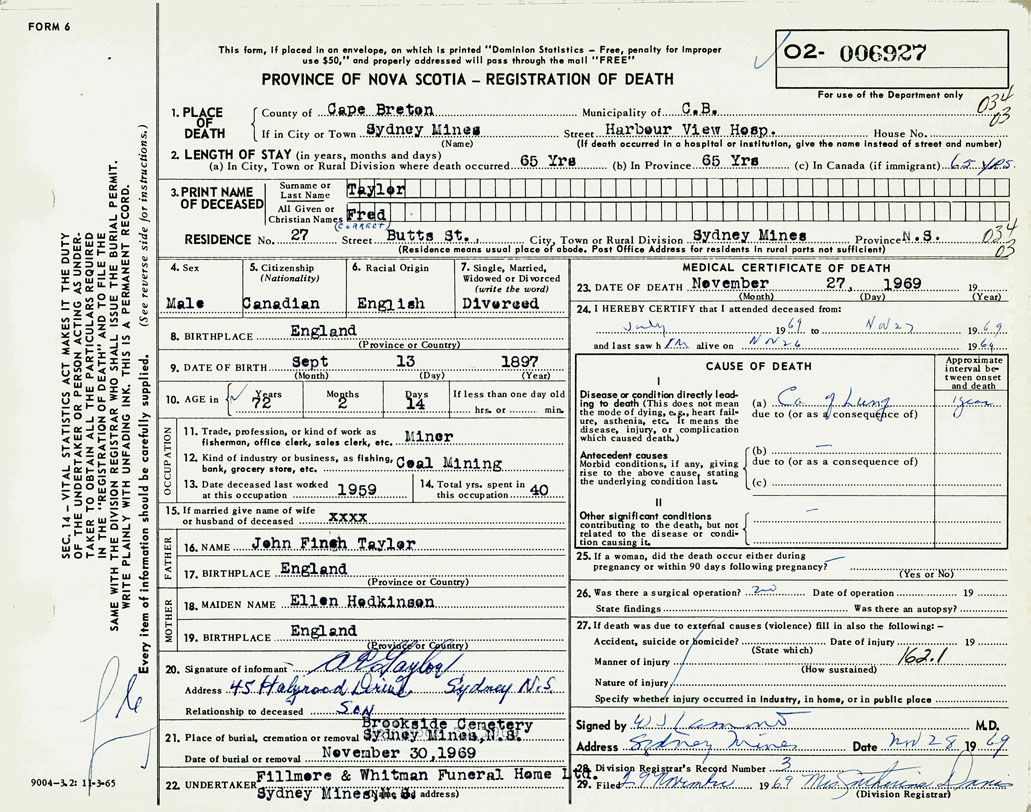 FORM 6
This form, if placed in an envelope, on which is printed "Dominion Statistics – Free, penalty for improper
use $50," and properly addressed will pass through the mail "FREE"
PROVINCE OF NOVA SCOTIA – REGISTRATION OF DEATH
02- 006927
For use of the Department only
034
03
1. PLACE OF DEATH
County of Cape Breton Municipality of C.B.
If in City or Town Sydney Mines Street Harbour View Hosp. House No.
(Name) (If death occurred in a hospital or institution, give the name instead of street and number)
2. LENGTH OF STAY (in years, months and days)
(a) In City, Town or Rural Division where death occurred 65 Yrs (b) In Province 65 Yrs (c) In Canada (if immigrant) 65 yrs.
3. PRINT NAME OF DECEASED
Surname or Last Name Taylor
All Given or Christian Names Fred
(CORRECT)
RESIDENCE No. 27 Street Butts St., City, Town or Rural Division Sydney Mines Province N.S.
(Residence means usual place of abode. Post Office Address for residents in rural parts not sufficient)
034
03
4. Sex
Male
5. Citizenship
(Nationality)
Canadian
6. Racial Origin
English
7. Single, Married,
Widowed or Divorced
(write the word)
Divorced
8. BIRTHPLACE England
(Province or Country)
9. DATE OF BIRTH Sept 13 1897
(Month) (Day) (Year)
10. AGE in Years Months Days If less than one day old
72 2 14 hrs. or min.
OCCUPATION
11. Trade, profession, or kind of work as
fisherman, office clerk, sales clerk, etc. Miner
12. Kind of industry or business, as fishing,
bank, grocery store, etc. Coal Mining
13. Date deceased last worked
at this occupation 1959
14. Total yrs. spent in
this occupation 40
15. If married give name of wife
or husband of deceased xxxx
FATHER
16. NAME John Finch Taylor
17. BIRTHPLACE England
(Province or Country)
MOTHER
18. MAIDEN NAME Ellen Hodkinson
19. BIRTHPLACE England
(Province or Country)
20. Signature of informant Taylor
Address 45 Drive Sydney N.S.
Relationship to deceased Son
21. Place of burial, cremation or removal Brookside Cemetery
Sydney Mines, N.S.
Date of burial or removal November 30, 1969
22. UNDERTAKER Fillmore & Whitman Funeral Home Ltd.
Sydney Mines, N.S.
(Name and address)
MEDICAL CERTIFICATE OF DEATH
23. DATE OF DEATH November 27, 1969 19
(Month) (Day) (Year)
24. I HEREBY CERTIFY that I attended deceased from:
July 1969 to Nov 27 1969
and last saw him alive on Nov 26 1969
CAUSE OF DEATH
Approximate
interval be-
tween onset
and death
I
Disease or condition directly lead-
ing to death (This does not mean
the mode of dying, e.g., heart fail-
ure, asthenia, etc. It means the
disease, injury, or complication
which caused death.)
(a) Ca. of Lung 1 year
due to (or as a consequence of)
Antecedent causes
Morbid conditions, if any, giving
rise to the above cause, stating
the underlying condition last.
(b) –
due to (or as a consequence of)
(c)
II
Other significant conditions
contributing to the death, but not
related to the disease or condi-
tion causing it. –
25. If a woman, did the death occur either during
pregnancy or within 90 days following pregnancy? –
(Yes or No)
26. Was there a surgical operation? no Date of operation 19
State findings Was there an autopsy?
27. If death was due to external causes (violence) fill in also the following: –
Accident, suicide or homicide? Date of injury 19
(State which)
Manner of injury 162.1
(How sustained)
Nature of injury
Specify whether injury occurred in Industry, in home, or in public place
Signed by W S Lamond M.D.
Address Sydney Mines Date Nov 28 1969
28. Division Registrar's Record Number 3
29. Filed 29 November 1969 Mrs. Catherine Davis
(Division Registrar)
SEC. 14 – VITAL STATISTICS ACT MAKES IT THE DUTY
OF THE UNDERTAKER OR PERSON ACTING AS UNDER-
TAKER TO OBTAIN ALL THE PARTICULARS REQUIRED
IN THE "REGISTRATION OF DEATH" AND TO FILE THE
SAME WITH THE DIVISION REGISTRAR WHO SHALL ISSUE THE BURIAL PERMIT.
WRITE PLAINLY WITH UNFADING INK. THIS IS A PERMANENT RECORD.
Every item of information should be carefully supplied. (See reverse side for instructions.)
9004–3.2: 11-3-65